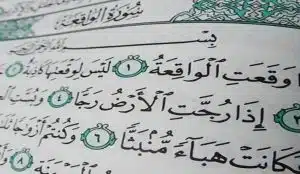 سُورَةُ الْوَاقِعَةِ
بِسْ
وَقَعَتِ ٱلْوَاقِعَةُ ١ لَيْسَ لِوَقْعَتِهَا كَاذِبَةٌ
٣ إِذَا رُجَّتِ ٱلْأَرْضُ رَجًّا ٤ وَبُسَّتِ
فَكَانَتْ هَبَآءً مُّنۢبَثًّا ٦ وَكُنتُمْ أَزْوَٰجًا
٨